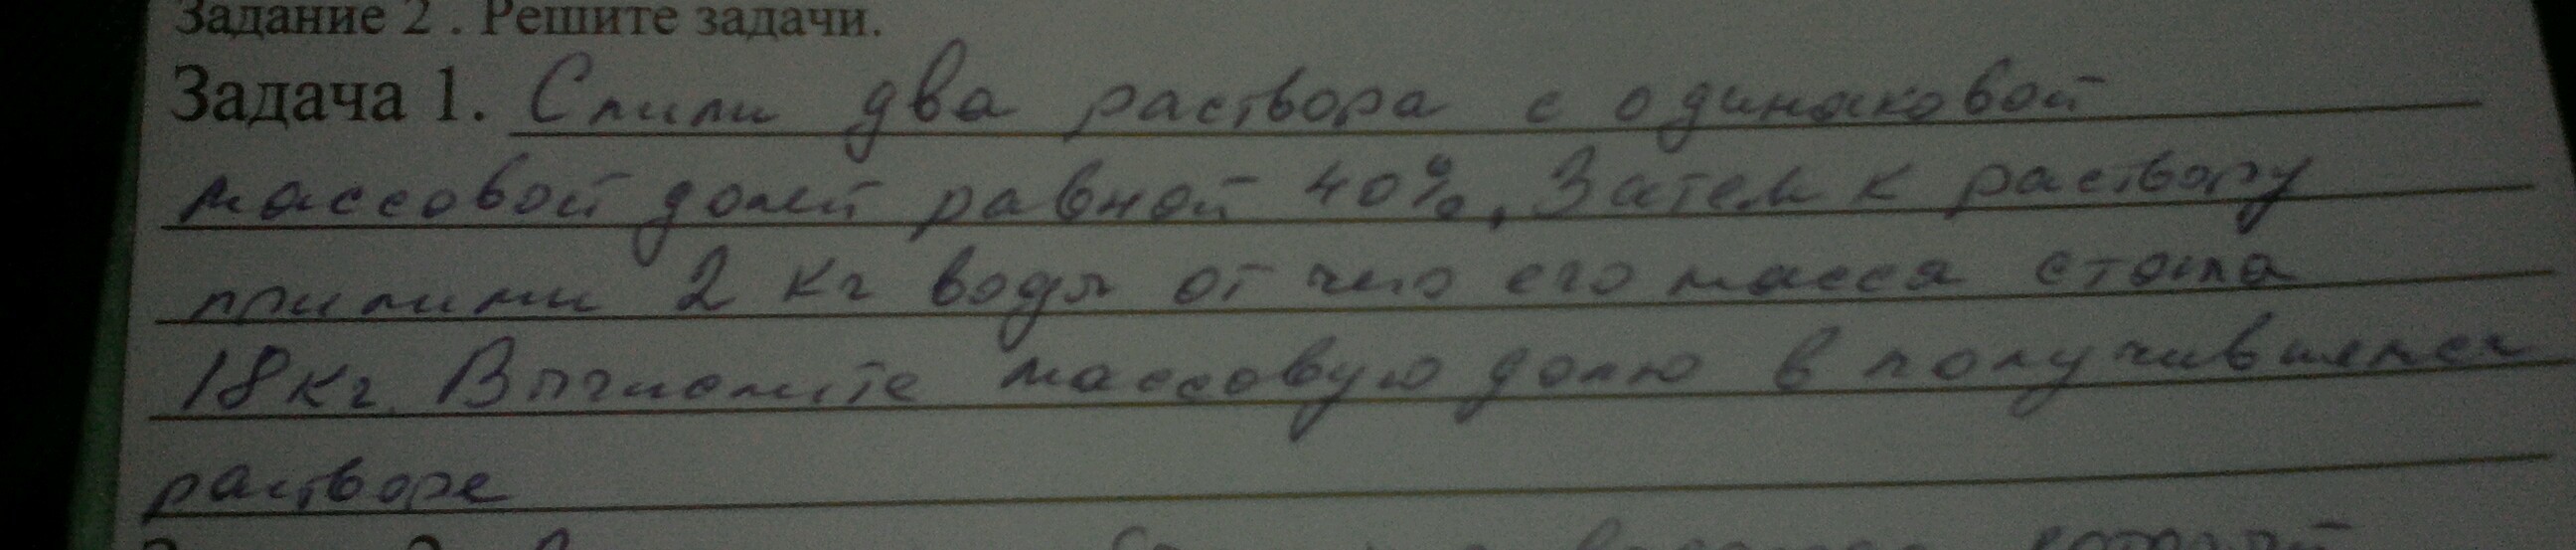 Задание 2 . Решите задачи.
Задача 1. Слили два раствора с одинаковой
массовой долей равной 40%. Затем к раствору
прилили 2 кг воды от чего его масса стала
18 кг. Вычислите массовую долю в получившемся
растворе